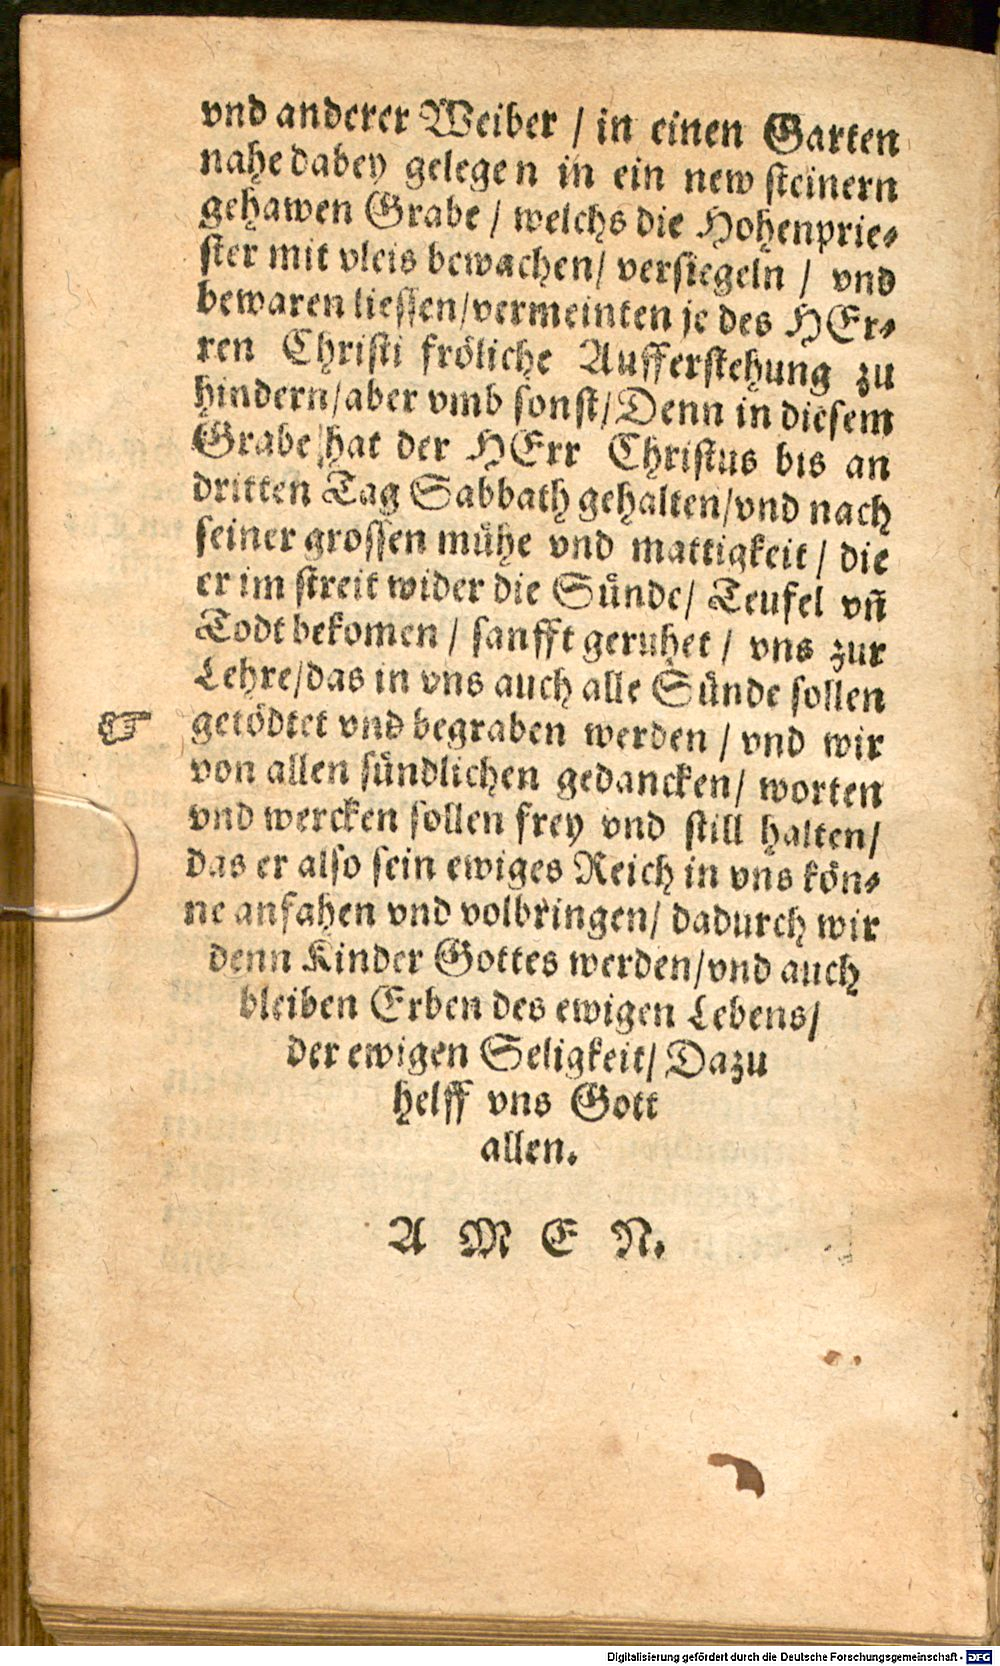 vnd anderer Weiber / in einen Garten
nahe dabey gelegen in ein new steinern
gehawen Grabe / welchs die Hohenprie⸗
ster mit vleis bewachen/ versiegeln / vnd
bewaren liessen/vermeinten je des HEr⸗
ren Christi fröliche Aufferstehung zu
hindern/aber vmb sonst/Denn in diesem
Grabe hat der HErr Christus bis an
dritten Tag Sabbath gehalten/vnd nach
seiner grossen mühe vnd mattigkeit / die
er im streit wider die Sünde/ Teufel vñ
Todt bekomen / sanfft geruhet / vns zur
Lehre/das in vns auch alle Sünde sollen
☞ getödtet vnd begraben werden / vnd wir
von allen sündlichen gedancken/ worten
vnd wercken sollen frey vnd still halten/
das er also sein ewiges Reich in vns kön⸗
ne anfahen vnd volbringen/ dadurch wir
denn Kinder Gottes werden/vnd auch
bleiben Erben des ewigen Lebens/
der ewigen Seligkeit/ Dazu
helff vns Gott
allen.
A M E N.
Digitalisierung gefördert durch die Deutsche Forschungsgemeinschaft - DFG